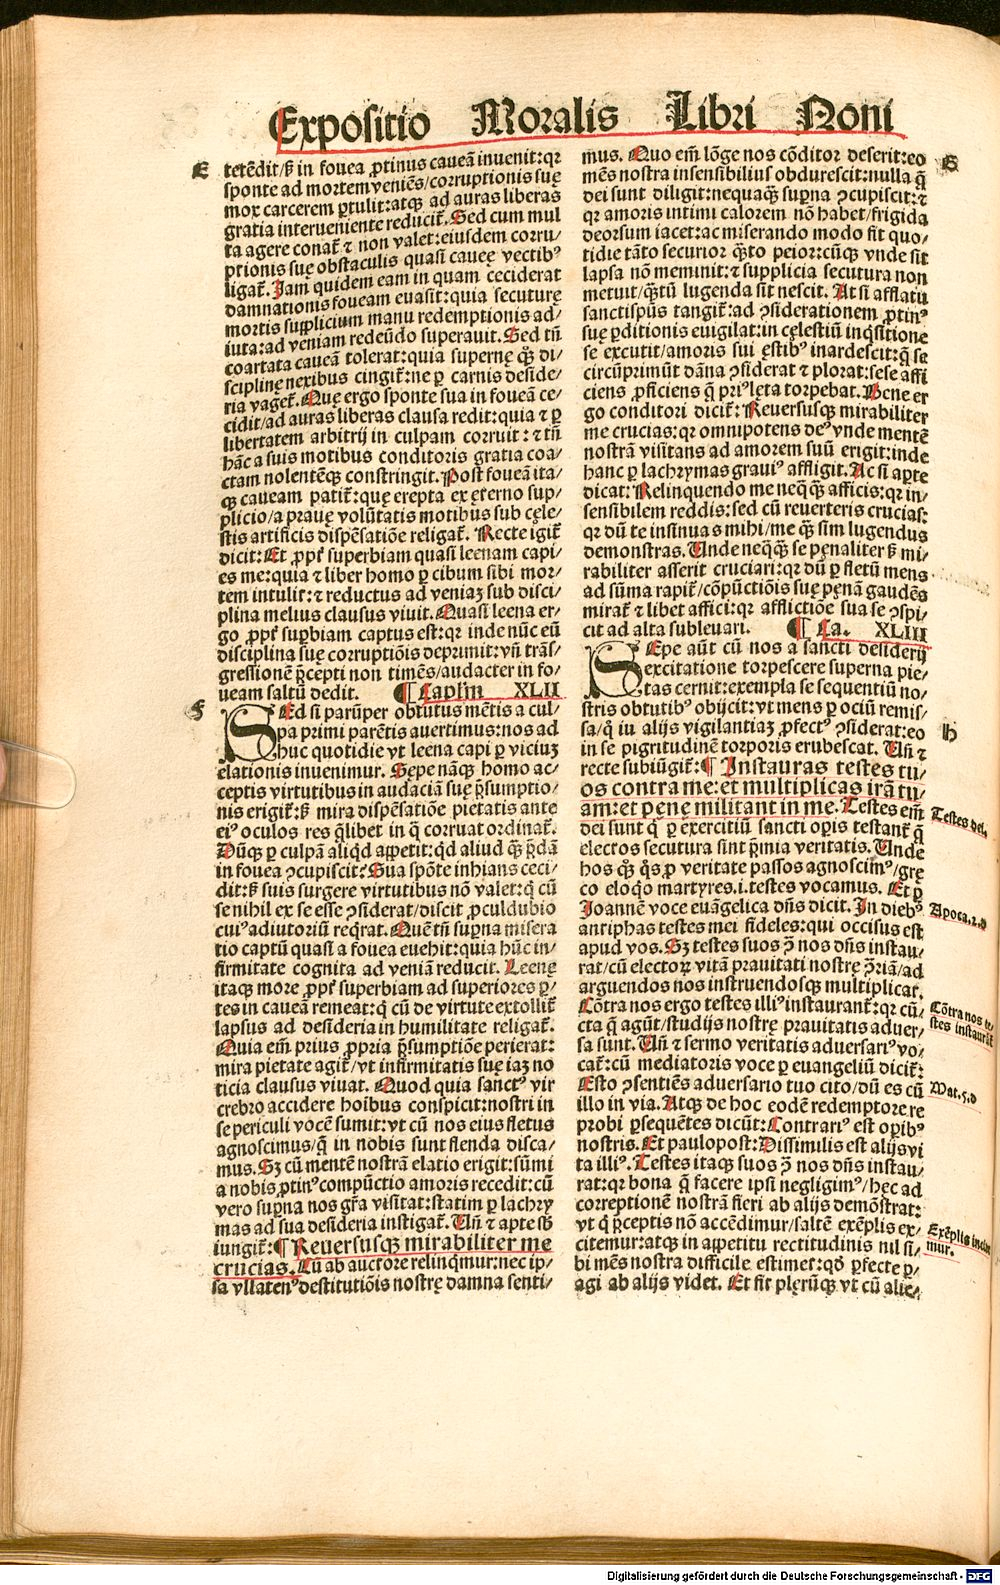 Expositio Moralis Libri Noni
E
tetēdit/ß in fouea ꝓtinus caueā inuenit:qꝛ
sponte ad mortem veniēs/corruptionis suę
mox carcerem ꝑtulit:atqꝫ ad auras liberas
gratia interueniente reduciť. Sed cum mul
ta agere conať ⁊ non valet:eiusdem corru/
ptionis suę obstaculis quasi cauęę vectibꝰ
ligať. Jam quidem eam in quam ceciderat
damnationis foueam euasit:quia secuturę
mortis supplicium manu redemptionis ad/
iuta:ad veniam redeūdo superauit. Sed tñ
coartata caueā tolerat:quia supernę qꝫ̈ di/
sciplinę nexibus cingiť:ne ꝑ carnis deside/
ria vageť. Quę ergo sponte sua in foueā ce/
cidit/ad auras liberas clausa redit:quia ⁊ ꝑ
libertatem arbitrij in culpam corruit:⁊ tñ
hāc a suis motibus conditoris gratia coa/
ctam nolentēqꝫ constringit. Post foueā ita/
qꝫ caueam patiť:quę erepta ex ęterno sup/
plicio/a prauę volūtatis motibus sub cęle/
stis artificis dispēsatiōe religať. Recte igiť
dicit:Et ꝓpť superbiam quasi leenam capi/
es me:quia ⁊ liber homo ꝑ cibum sibi mor/
tem intulit:⁊ reductus ad veniaꝫ sub disci/
plina melius clausus viuit. Quasi leena er/
go ꝓpť suꝑbiam captus est:qꝛ inde nūc eū
disciplina suę corruptiōis deprimit:vñ trās/
gressionem p̄cepti non timēs/audacter in fo/
ueam saltū dedit. ¶ Caplm̄ XLII
F
SEd si parūper obtutus mētis a cul/
pa primi parētis auertimus:nos ad
huc quotidie vt leena capi ꝑ viciuꝫ
elationis inuenimur. Sepe nāqꝫ homo ac/
ceptis virtutibus in audaciā suę p̄sumptio/
nis erigiť:ß mira dispēsatiōe pietatis ante
eiꝰ oculos res q̄libet in q̄ corruat ordinať.
Dūqꝫ ꝑ culpā aliqd appetit:qd aliud qꝫ̄ p̄dā
in fouea ꝯcupiscit? Sua spōte inhians ceci/
dit:ß suis surgere virtutibus nō valet:q̄ cū
se nihil ex se esse ꝯsiderat/discit ꝓculdubio
cuiꝰ adiutoriū reqrat. Quē tñ suꝑna misera
tio captū quasi a fouea euehit:quia hūc in/
firmitate cognita ad veniā reducit. Leenę
itaqꝫ more ꝓpť superbiam ad superiores ꝑ/
tes in caueā remeat:q̄ cū de virtute extolliť
lapsus ad desideria in humilitate religať.
Quia em̄ prius ꝓpria p̄sumptiōe perierat:
mira pietate agiť/vt infirmitatis suę iaꝫ no
ticia clausus viuat. Quod quia sanctꝰ vir
crebro accidere hoībus conspicit:nostri in
se periculi vocē sumit:vt cū nos eius fletus
agnoscimus/q̄ in nobis sunt flenda disca/
mus. Sꝫ cū mentē nostrā elatio erigit:sūmi
a nobis ꝓtinꝰ compūctio amoris recedit:cū
vero suꝑna nos gr̄a visitat:statim ꝑ lachry
mas ad sua desideria instigať. Uñ ⁊ apte sb̄
iungiť:¶ Reuersusqꝫ mirabiliter me
crucias. Cū ab auctore relinq̄mur:nec ip/
sa vllatenꝰ destitutiōis nostrę damna senti-
mus. Quo em̄ lōge nos cōditor deserit:eo
mēs nostra insensibilius obdurescit:nulla q̄
dei sunt diligit:nequaqꝫ̄ suꝑna ꝯcupiscit:⁊
qꝛ amoris intimi calorem nō habet/frigida
deorsum iacet:ac miserando modo fit quo/
tidie tāto securior qꝫ̄to peior:cūqꝫ vnde sit
lapsa nō meminit:⁊ supplicia secutura non
metuit/qꝫ̄tū lugenda sit nescit. At si afflatu
sanctispūs tangiť:ad ꝯsiderationem ꝓtinꝰ
suę ꝑditionis euigilat:in cęlestiū inqsitione
se excutit/amoris sui ęstibꝰ inardescit:q̄ se
circūprimūt dāna ꝯsiderat ⁊ plorat:sese affi
ciens ꝓficiens q̄ priꝰ lęta torpebat. Bene er
go conditori diciť:Reuersusqꝫ mirabiliter
me crucias:qꝛ omnipotens deꝰ vnde mentē
nostrā visitans ad amorem suū erigit:inde
hanc ꝑ lachrymas grauiꝰ affligit. Ac si apte
dicat:Relinquendo me neq̄qꝫ̄ afficis:qꝛ in/
sensibilem reddis:sed cū reuerteris crucias:
qꝛ dū te insinuas mihi/me qꝫ̄ sim lugendus
demonstras. Unde neq̄qꝫ̄ se pęnaliter ß mi/
rabiliter asserit cruciari:qꝛ dū ꝑ fletū mens
ad sūma rapiť/cōpūctiōis suę pęnā gaudēs
mirať ⁊ libet affici:qꝛ afflictiōe sua se ꝯspi/
cit ad alta subleuari. ¶ Ca. XLIII
SEpe aūt cū nos a sancti desiderij
excitatione torpescere superna pie/
tas cernit:exempla se sequentiū no/
stris obtutibꝰ obijcit:vt mens ꝑ ociū remis/
sa/q̄ iu alijs vigilantiaꝫ ꝓfectꝰ ꝯsiderat:eo
in se pigritudinē torporis erubescat. Uñ ⁊
recte subiūgiť:¶ Instauras testes tu/
os contra me:et multiplicas irā tu/
am:et pęnę militant in me. Testes em̄
dei sunt q̄ ꝑ exercitiū sancti oꝑis testanť q̄
electos secutura sint p̄mia veritatis. Unde
hos qꝫ̈ q̄s ꝓ veritate passos agnoscimꝰ/gre
co eloq̄o martyres.i.testes vocamus. Et ꝑ
Joannē voce euāgelica dn̄s dicit. In diebꝰ
antiphas testes mei fideles:qui occisus est
apud vos. Sꝫ testes suos ꝯ̄ nos dn̄s instau/
rat/cū electoꝝ vitā prauitati nostrę ꝯ̄riā/ad
arguendos nos instruendosqꝫ multiplicat.
Cōtra nos ergo testes illiꝰ instauranť:qꝛ cū/
cta q̄ agūt/studijs nostrę prauitatis aduer/
sa sunt. Uñ ⁊ sermo veritatis aduersariꝰ vo/
cať:cū mediatoris voce ꝑ euangeliū diciť:
Esto ꝯsentiēs aduersario tuo cito/dū es cū
illo in via. Atqꝫ de hoc eodē redemptore re
probi ꝑsequētes dicūt:Contrariꝰ est oꝑibꝰ
nostris. Et paulopost:Dissimilis est alijs vi
ta illiꝰ. Testes itaqꝫ suos ꝯ̄ nos dn̄s instau/
rat:qꝛ bona q̄ facere ipsi negligimꝰ/hęc ad
correptionē nostrā fieri ab alijs demōstrat:
vt q̄ p̄ceptis nō accēdimur/saltē exēplis ex/
citemur:atqꝫ in appetitu rectitudinis nil si/
bi mēs nostra difficile estimet:qd̄ ꝑfecte ꝑ/
agi ab alijs videt. Et fit plęrūqꝫ vt cū alie/
G
H
Testes dei.
Apoca.2.d
Cōtra nos te/
stes instaurāt
Mat.5.d
mur.